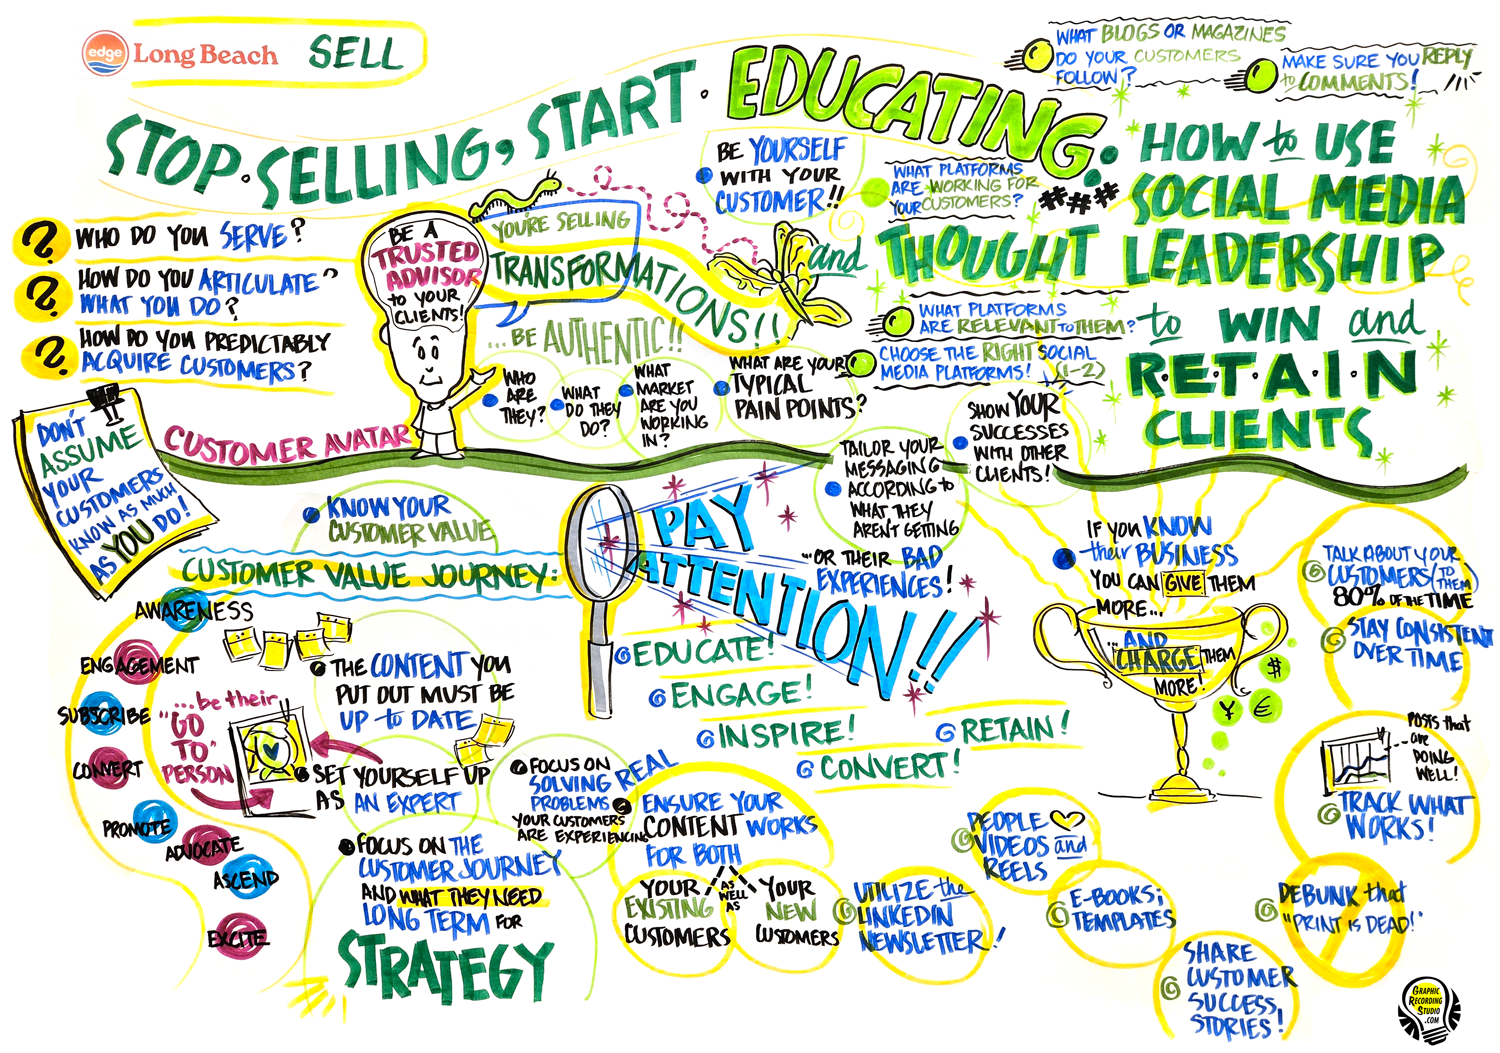 edge
Long Beach
SELL
STOP·SELLING, START·EDUCATING:
HOW to USE
SOCIAL MEDIA
and THOUGHT LEADERSHIP
to WIN and
R·E·T·A·I·N
CLIENTS
WHAT BLOGS OR MAGAZINES
DO YOUR CUSTOMERS
FOLLOW?
MAKE SURE YOU REPLY
to COMMENTS!
BE YOURSELF
WITH YOUR
CUSTOMER!!
WHAT PLATFORMS
ARE WORKING FOR
YOUR CUSTOMERS?
###
WHAT PLATFORMS
ARE RELEVANT to THEM?
CHOOSE THE RIGHT SOCIAL
MEDIA PLATFORMS! (1-2)
? WHO DO YOU SERVE?
? HOW DO YOU ARTICULATE
WHAT YOU DO?
? HOW DO YOU PREDICTABLY
ACQUIRE CUSTOMERS?
BE A
TRUSTED
ADVISOR
to YOUR
CLIENTS!
YOU'RE SELLING
TRANSFORMATIONS!!
...BE AUTHENTIC!!
CUSTOMER AVATAR
WHO
ARE
THEY?
WHAT
DO THEY
DO?
WHAT
MARKET
ARE YOU
WORKING
IN?
WHAT ARE YOUR
TYPICAL
PAIN POINTS?
SHOW YOUR
SUCCESSES
WITH OTHER
CLIENTS!
TAILOR YOUR
MESSAGING
ACCORDING to
WHAT THEY
AREN'T GETTING
...OR THEIR BAD
EXPERIENCES!
DON'T
ASSUME
YOUR
CUSTOMERS
KNOW AS MUCH
AS YOU DO!
KNOW YOUR
CUSTOMER VALUE
CUSTOMER VALUE JOURNEY:
AWARENESS
ENGAGEMENT
SUBSCRIBE
CONVERT
PROMOTE
ADVOCATE
ASCEND
EXCITE
...be their
"GO
TO"
PERSON
THE CONTENT YOU
PUT OUT MUST BE
UP to DATE
SET YOURSELF UP
AS AN EXPERT
FOCUS ON THE
CUSTOMER JOURNEY
AND WHAT THEY NEED
LONG TERM FOR
STRATEGY
PAY
ATTENTION!!
EDUCATE!
ENGAGE!
INSPIRE!
CONVERT!
RETAIN!
FOCUS ON
SOLVING REAL
PROBLEMS
YOUR CUSTOMERS
ARE EXPERIENCING
ENSURE YOUR
CONTENT WORKS
FOR BOTH
YOUR
EXISTING
CUSTOMERS
AS
WELL
AS
YOUR
NEW
CUSTOMERS
IF YOU KNOW
their BUSINESS
YOU CAN GIVE THEM
MORE...
...AND
CHARGE THEM
MORE!
$
¥
€
TALK ABOUT YOUR
CUSTOMERS (TO THEM)
80% OF THE TIME
STAY CONSISTENT
OVER TIME
POSTS that
are
DOING
WELL!
TRACK WHAT
WORKS!
PEOPLE
VIDEOS and
REELS
UTILIZE the
LINKEDIN
NEWSLETTER!
E-BOOKS;
TEMPLATES
SHARE
CUSTOMER
SUCCESS
STORIES!
DEBUNK that
"PRINT IS DEAD!"
GRAPHIC
RECORDING
STUDIO
.COM